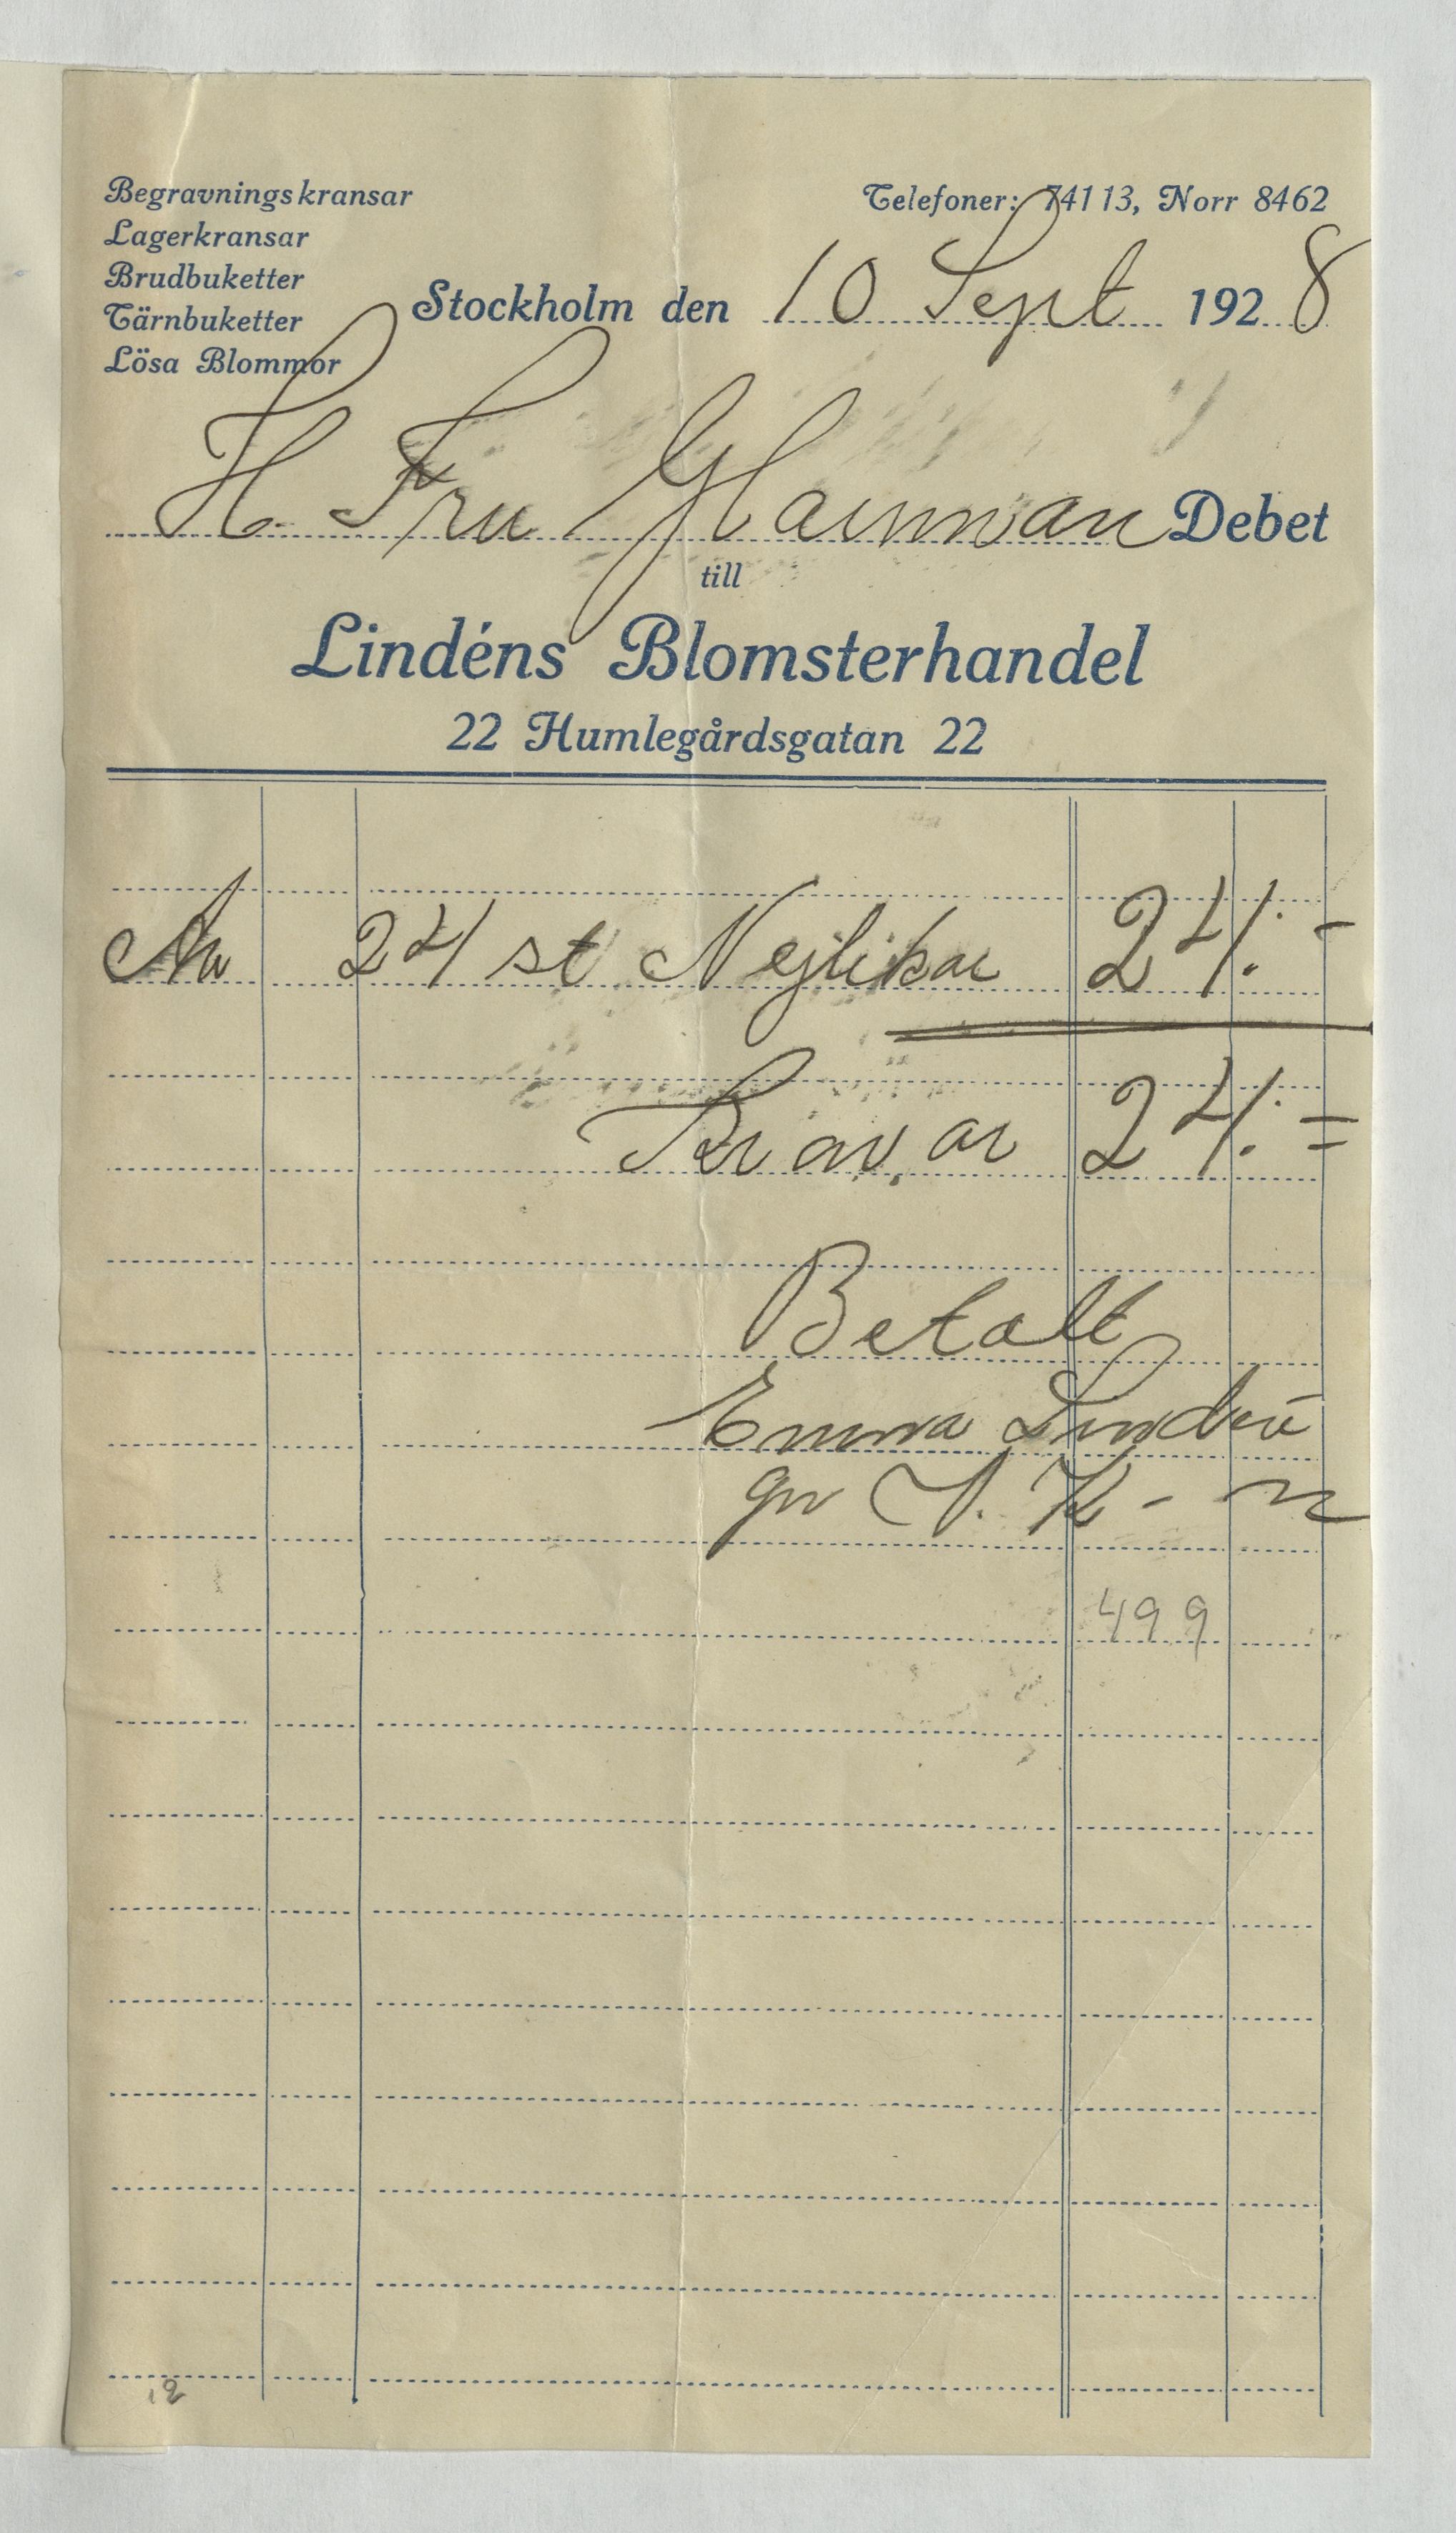 Begravningskransar
Lagerkransar
Brudbuketter
Tärnbuketter
Lösa Blommor
Telefoner: 74113, Norr 8462
Stockholm den 10 Sept 1928
H. Fru Debet
till
Lindéns Blomsterhandel
22 Humlegårdsgatan 22
24 st Nejlikor 24:-
Kronor 24:=
Betalt
Emma Lindén
gm
499